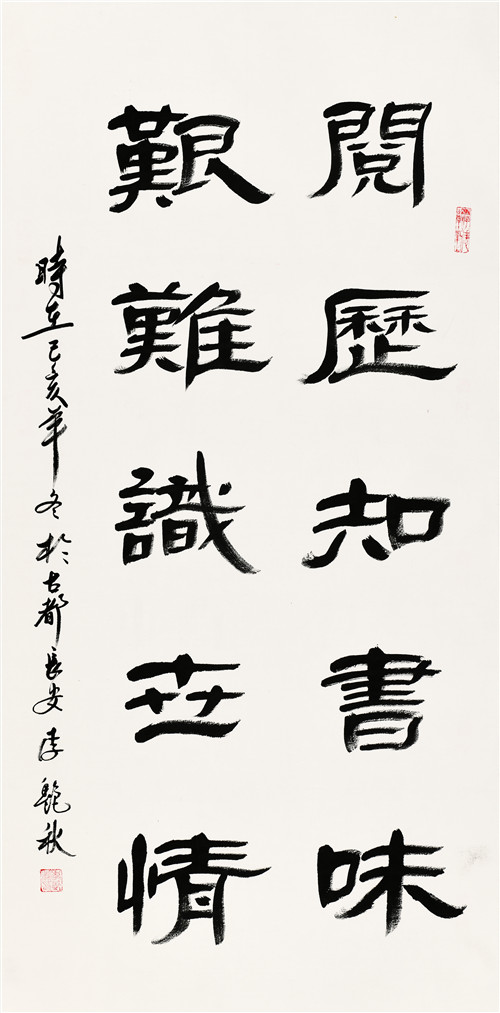 閱歷知書味
艱難識世情
時在己亥年冬於古都長安李艷秋